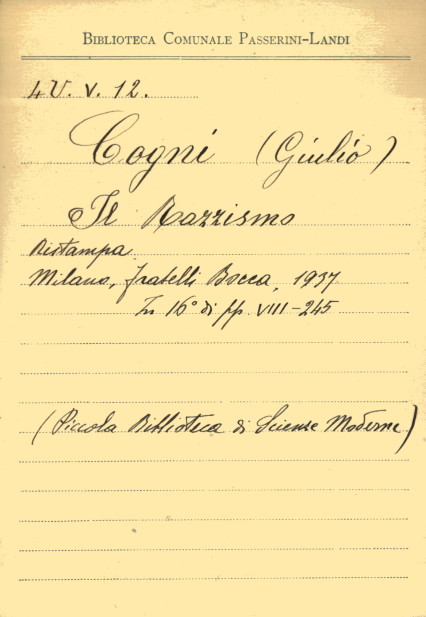 BIBLIOTECA COMUNALE PASSERINI-LANDI
4U. V. 12.
Cogni (Giulio)
Il Razzismo
Ristampa
Milano, fratelli Bocca, 1937
In 16° di pp. VIII-245
(Piccola Biblioteca di Scienze Moderne)